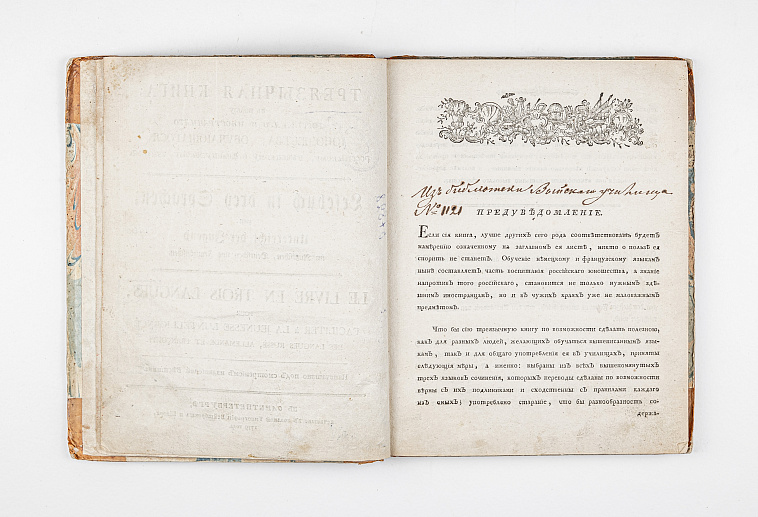 Изъ библіотеки Выйскаго училища
№ 1121
ПРЕДУВѢДОМЛЕНІЕ.
Если сія книга, лучше другихъ сего рода соотвѣтствовать будетъ
намѣренію означенному на заглавномъ ея листѣ, никто о пользѣ ея
спорить не станетъ. Обученіе нѣмецкому и французскому языкамъ
нынѣ составляетъ часть воспитанія россійскаго юношества, а знаніе
напротивъ того россійскаго, становится не только нужнымъ здѣ-
шнимъ иностранцамъ, но и въ чужихъ краяхъ уже не маловажнымъ
предметомъ.
Что бы сію треязычную книгу по возможности сдѣлать полезною,
какъ для разныхъ людей, желающихъ обучаться вышеписаннымъ язы-
камъ, такъ и для общаго употребленія ея въ училищахъ, приняты
слѣдующія мѣры, а именно: выбраны изъ всѣхъ вышепомянутыхъ
трехъ языковъ сочиненія, которыхъ переводы сдѣланы по возможности
вѣрны съ ихъ подлинниками и сходственны съ правилами каждаго
изъ оныхъ; употреблено стараніе, что бы разнообразность со-
держа-
ТРЕЯЗЫЧНАЯ КНИГА
LE LIVRE EN TROIS LANGUES
ВЪ САНКТПЕТЕРБУРГѢ